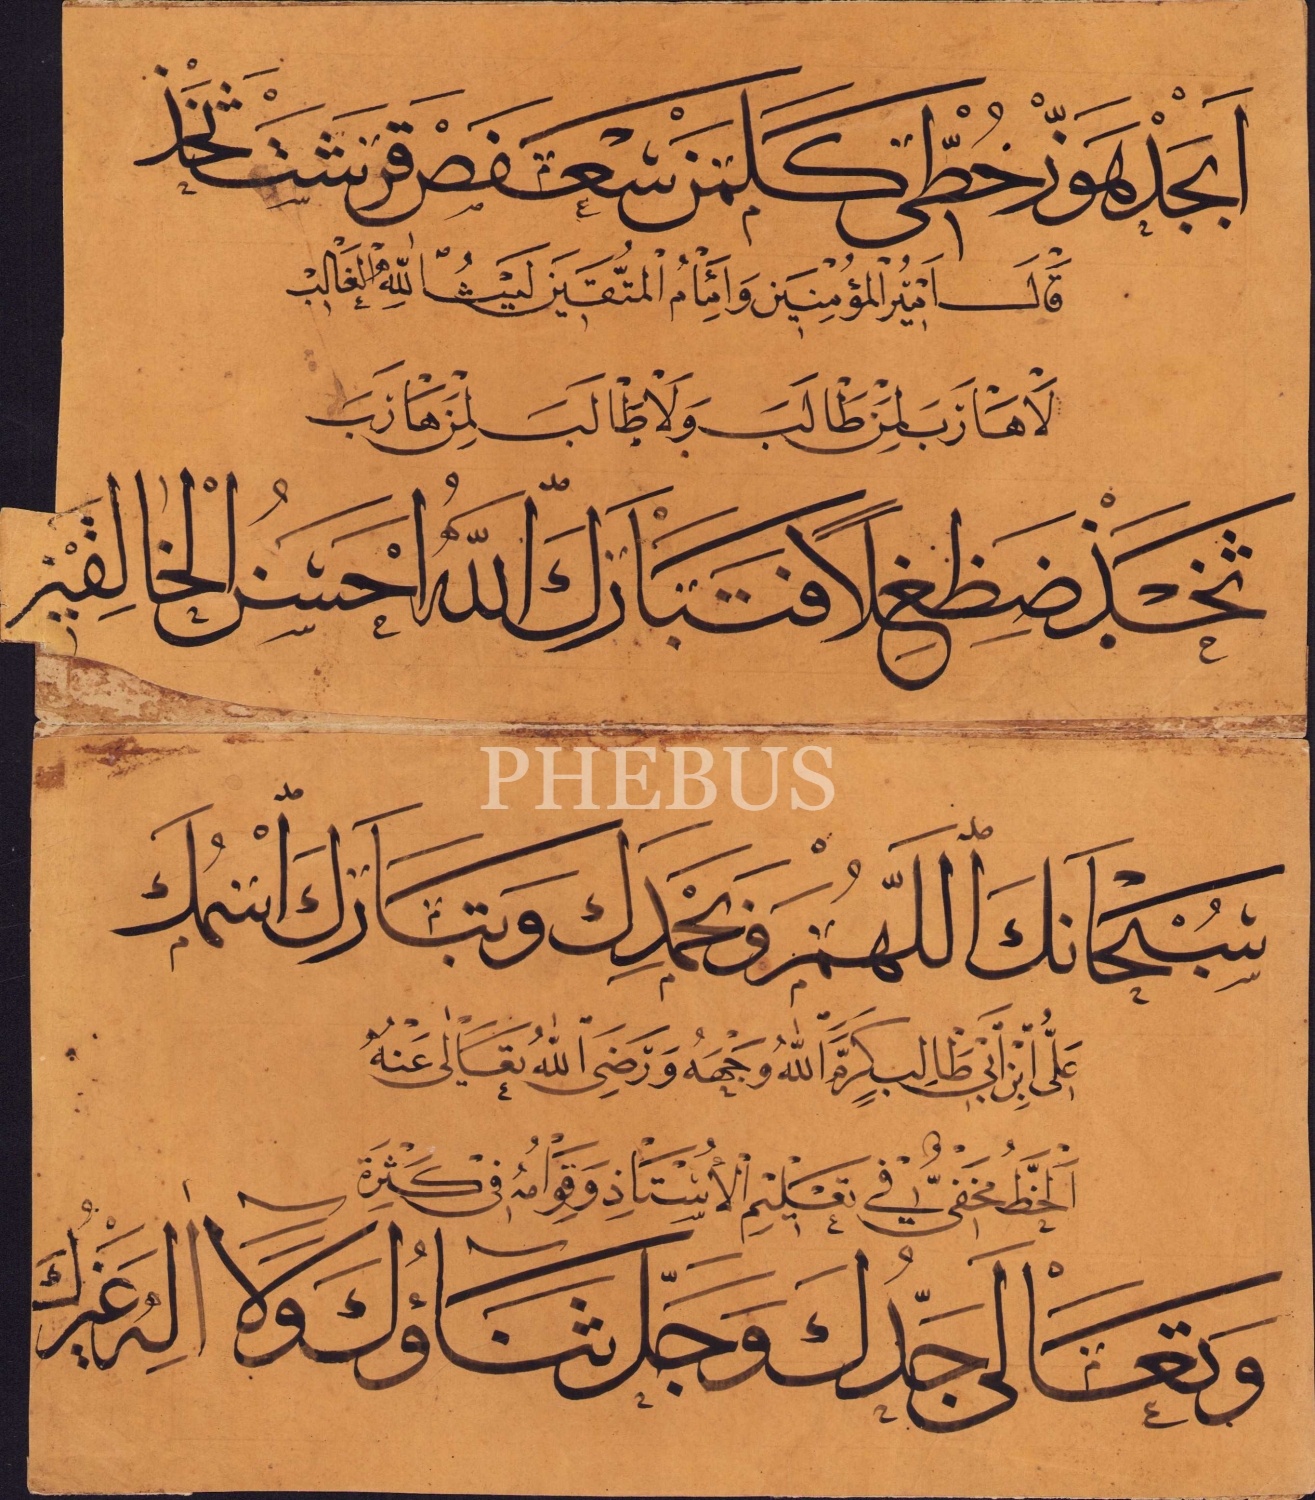 ابجد هوز حطي كلمن سعفص قرشت ثخذ
قال امير المؤمنين وامام المتقين ليث الله الغالب
لا هارب لمن طالب ولا طالب لمن هارب
ثخذ ضظغلا فتبارك الله احسن الخالقين
PHEBUS
سبحانك اللهم وبحمدك وتبارك اسمك
على ابن ابى طالب كرم الله وجهه ورضى الله تعالى عنه
الخط مخفى فى تعليم الأستاذ وقوامه فى كثرة
وتعالى جدك وجل ثناؤك ولا اله غيرك